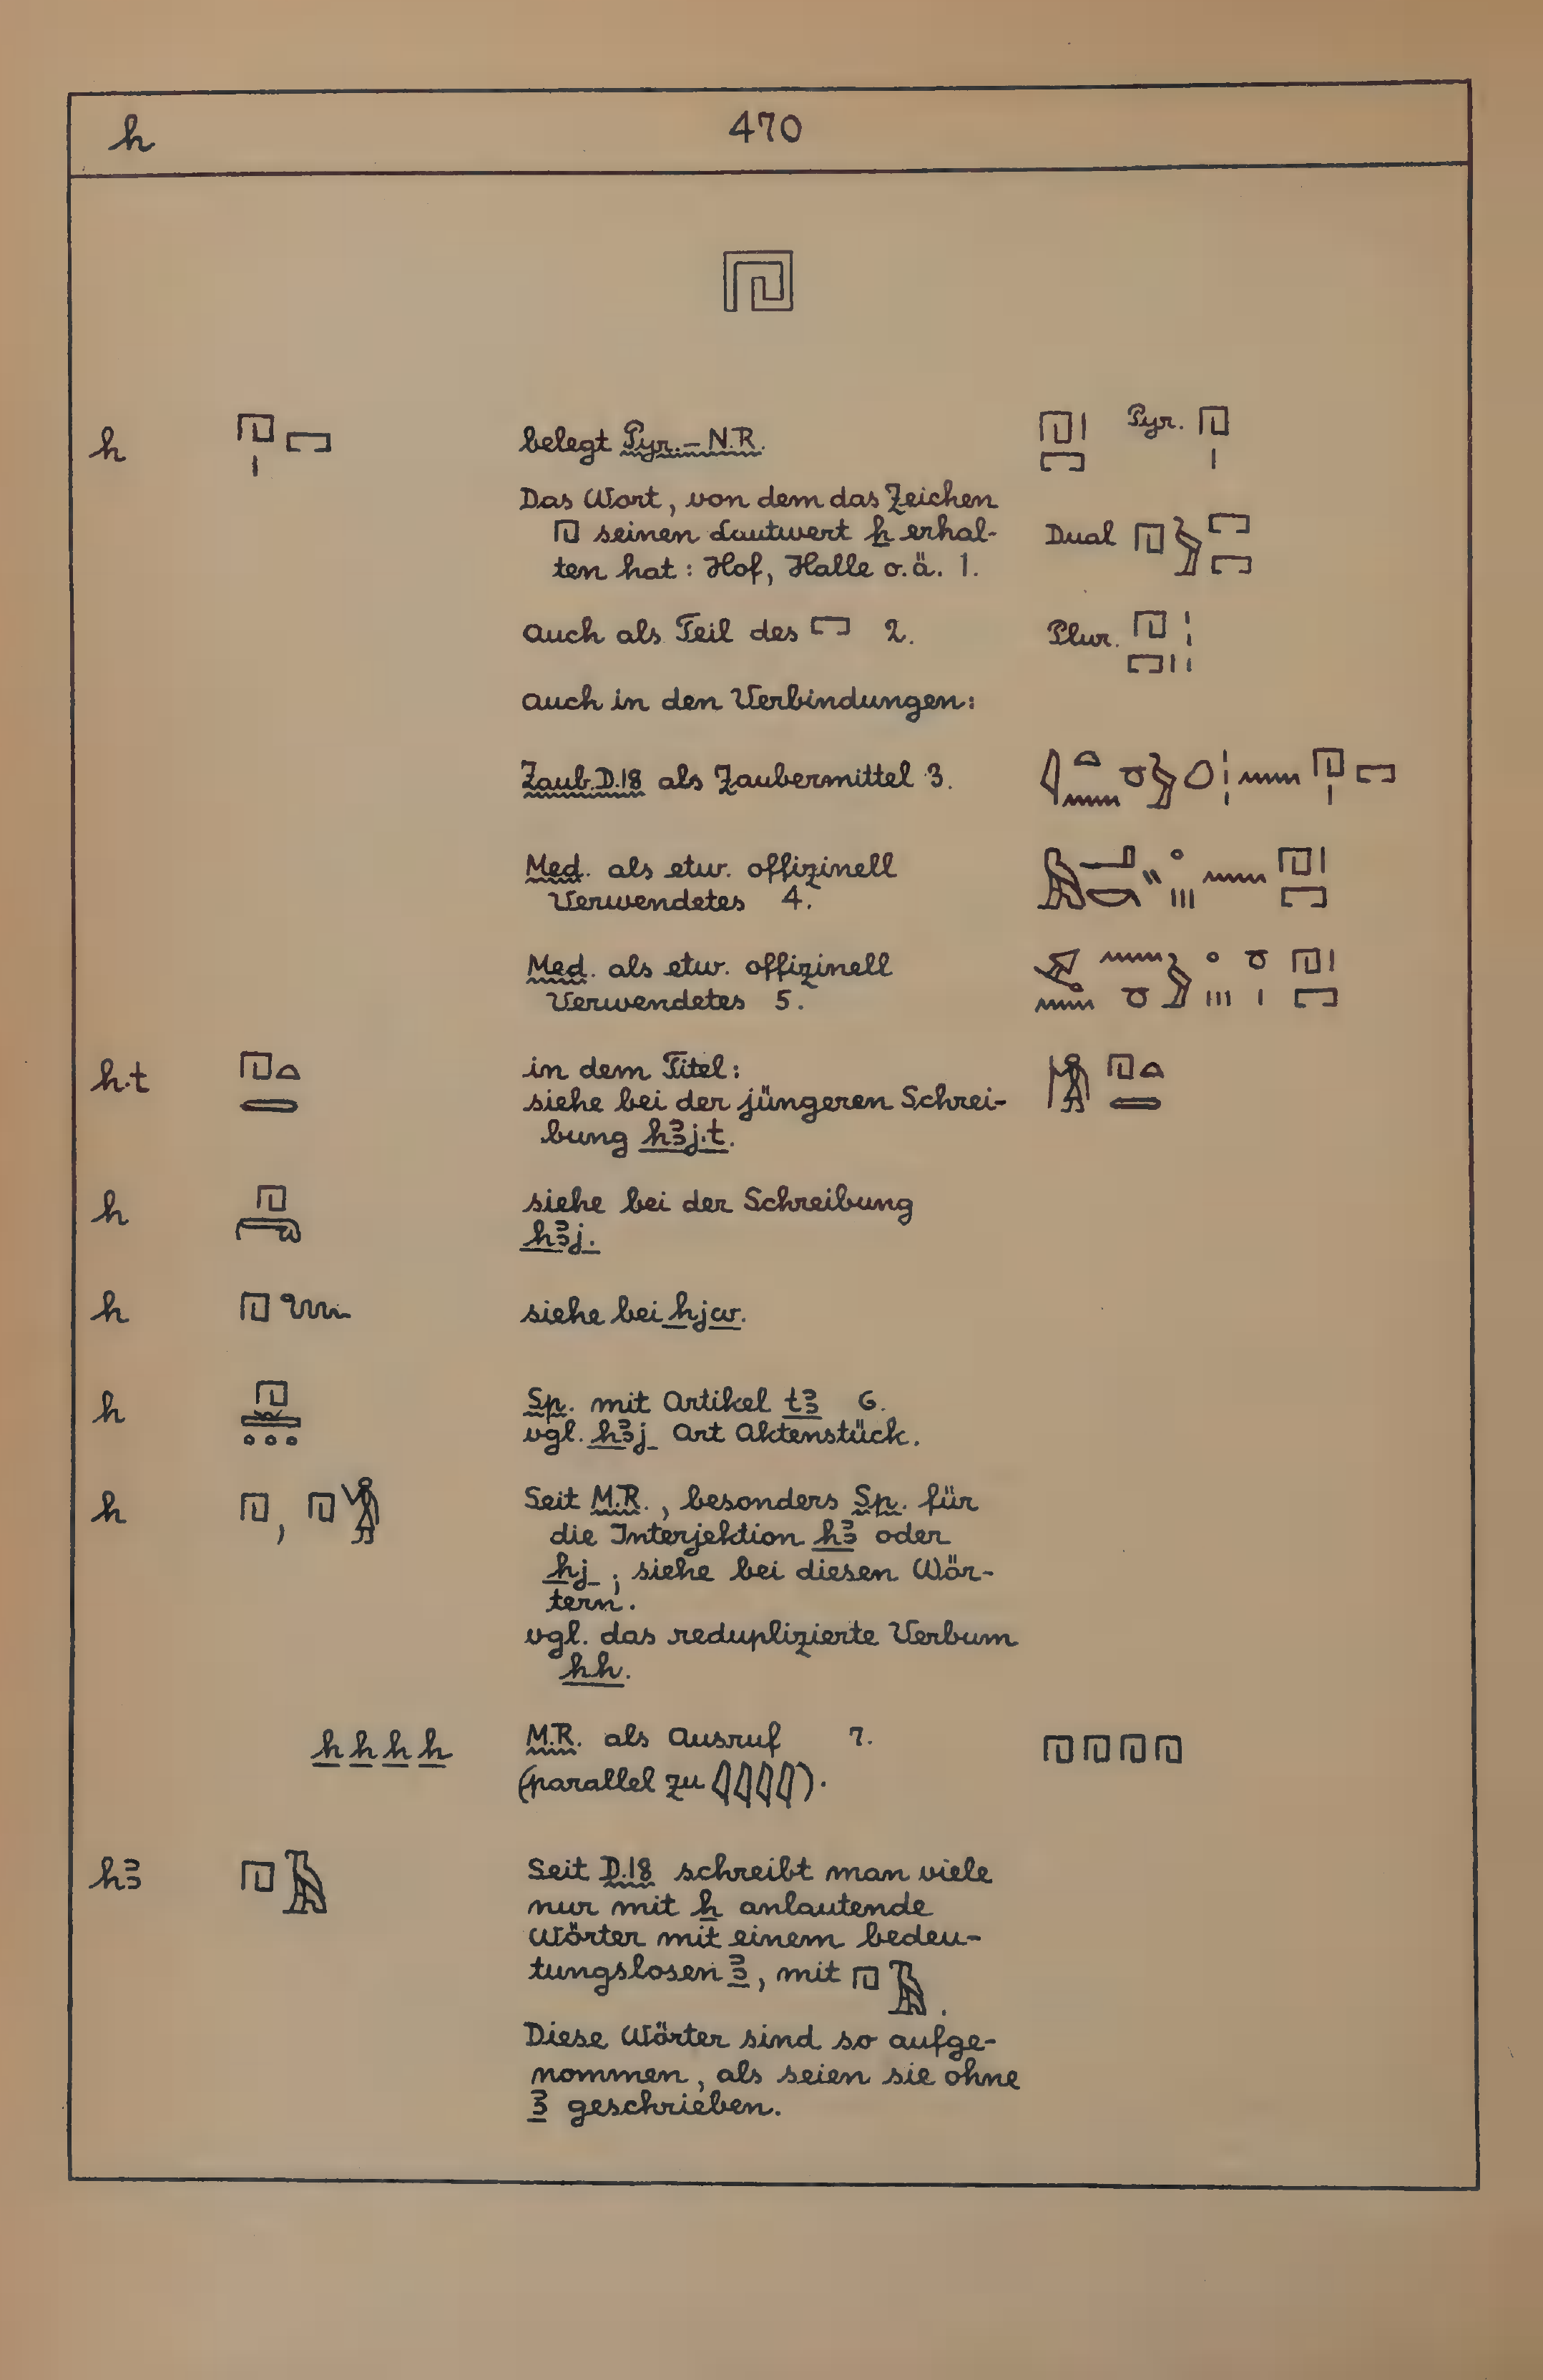 h 470
𓉔
h 𓉔𓏤𓉐 belegt Pyr.-N.R. 𓉔𓏤𓉐 Pyr. 𓉔𓏤
Das Wort, von dem das Zeichen
𓉔 seinen Lautwert h erhal- Dual 𓉔𓅱𓉐𓉐
ten hat: Hof, Halle o.ä. 1.
auch als Teil des 𓉐 2. Plur. 𓉔𓏤𓏤𓉐𓏤𓏤𓏤
auch in den Verbindungen:
Zaub. D.18 als Zaubermittel 3.
Med. als etw. offizinell
Verwendetes 4.
Med. als etw. offizinell
Verwendetes 5.
h.t 𓉔𓏏𓇿 in dem Titel: 𓀙𓉔𓏏𓇿
siehe bei der jüngeren Schrei-
bung hꜣj.t.
h siehe bei der Schreibung
hꜣj.
h siehe bei hjw.
h Sp. mit Artikel tꜣ 6.
vgl. hꜣj Art Aktenstück.
h 𓉔, 𓉔𓀁 Seit M.R., besonders Sp. für
die Interjektion hꜣ oder
hj; siehe bei diesen Wör-
tern.
vgl. das reduplizierte Verbum
hh.
h h h h M.R. als Ausruf 7. 𓉔𓉔𓉔𓉔
(parallel zu 𓇋𓇋𓇋𓇋).
hꜣ 𓉔𓄿 Seit D.18 schreibt man viele
nur mit h anlautende
Wörter mit einem bedeu-
tungslosen ꜣ, mit 𓉔𓄿.
Diese Wörter sind so aufge-
nommen, als seien sie ohne
ꜣ geschrieben.